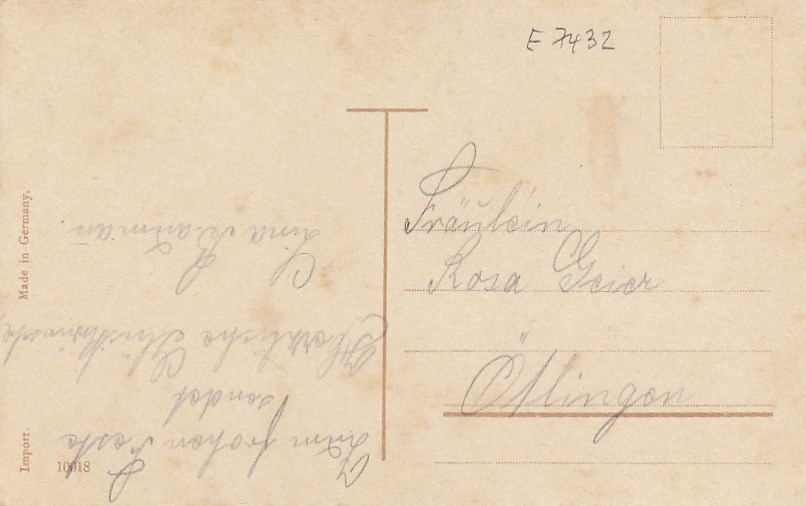 E 7432
Fräulein
Rosa Geier
Öflingen
Zum frohen Feste
sendet
Herzliche Glückwünsche,
Lina
Made in Germany.
Import.
10018